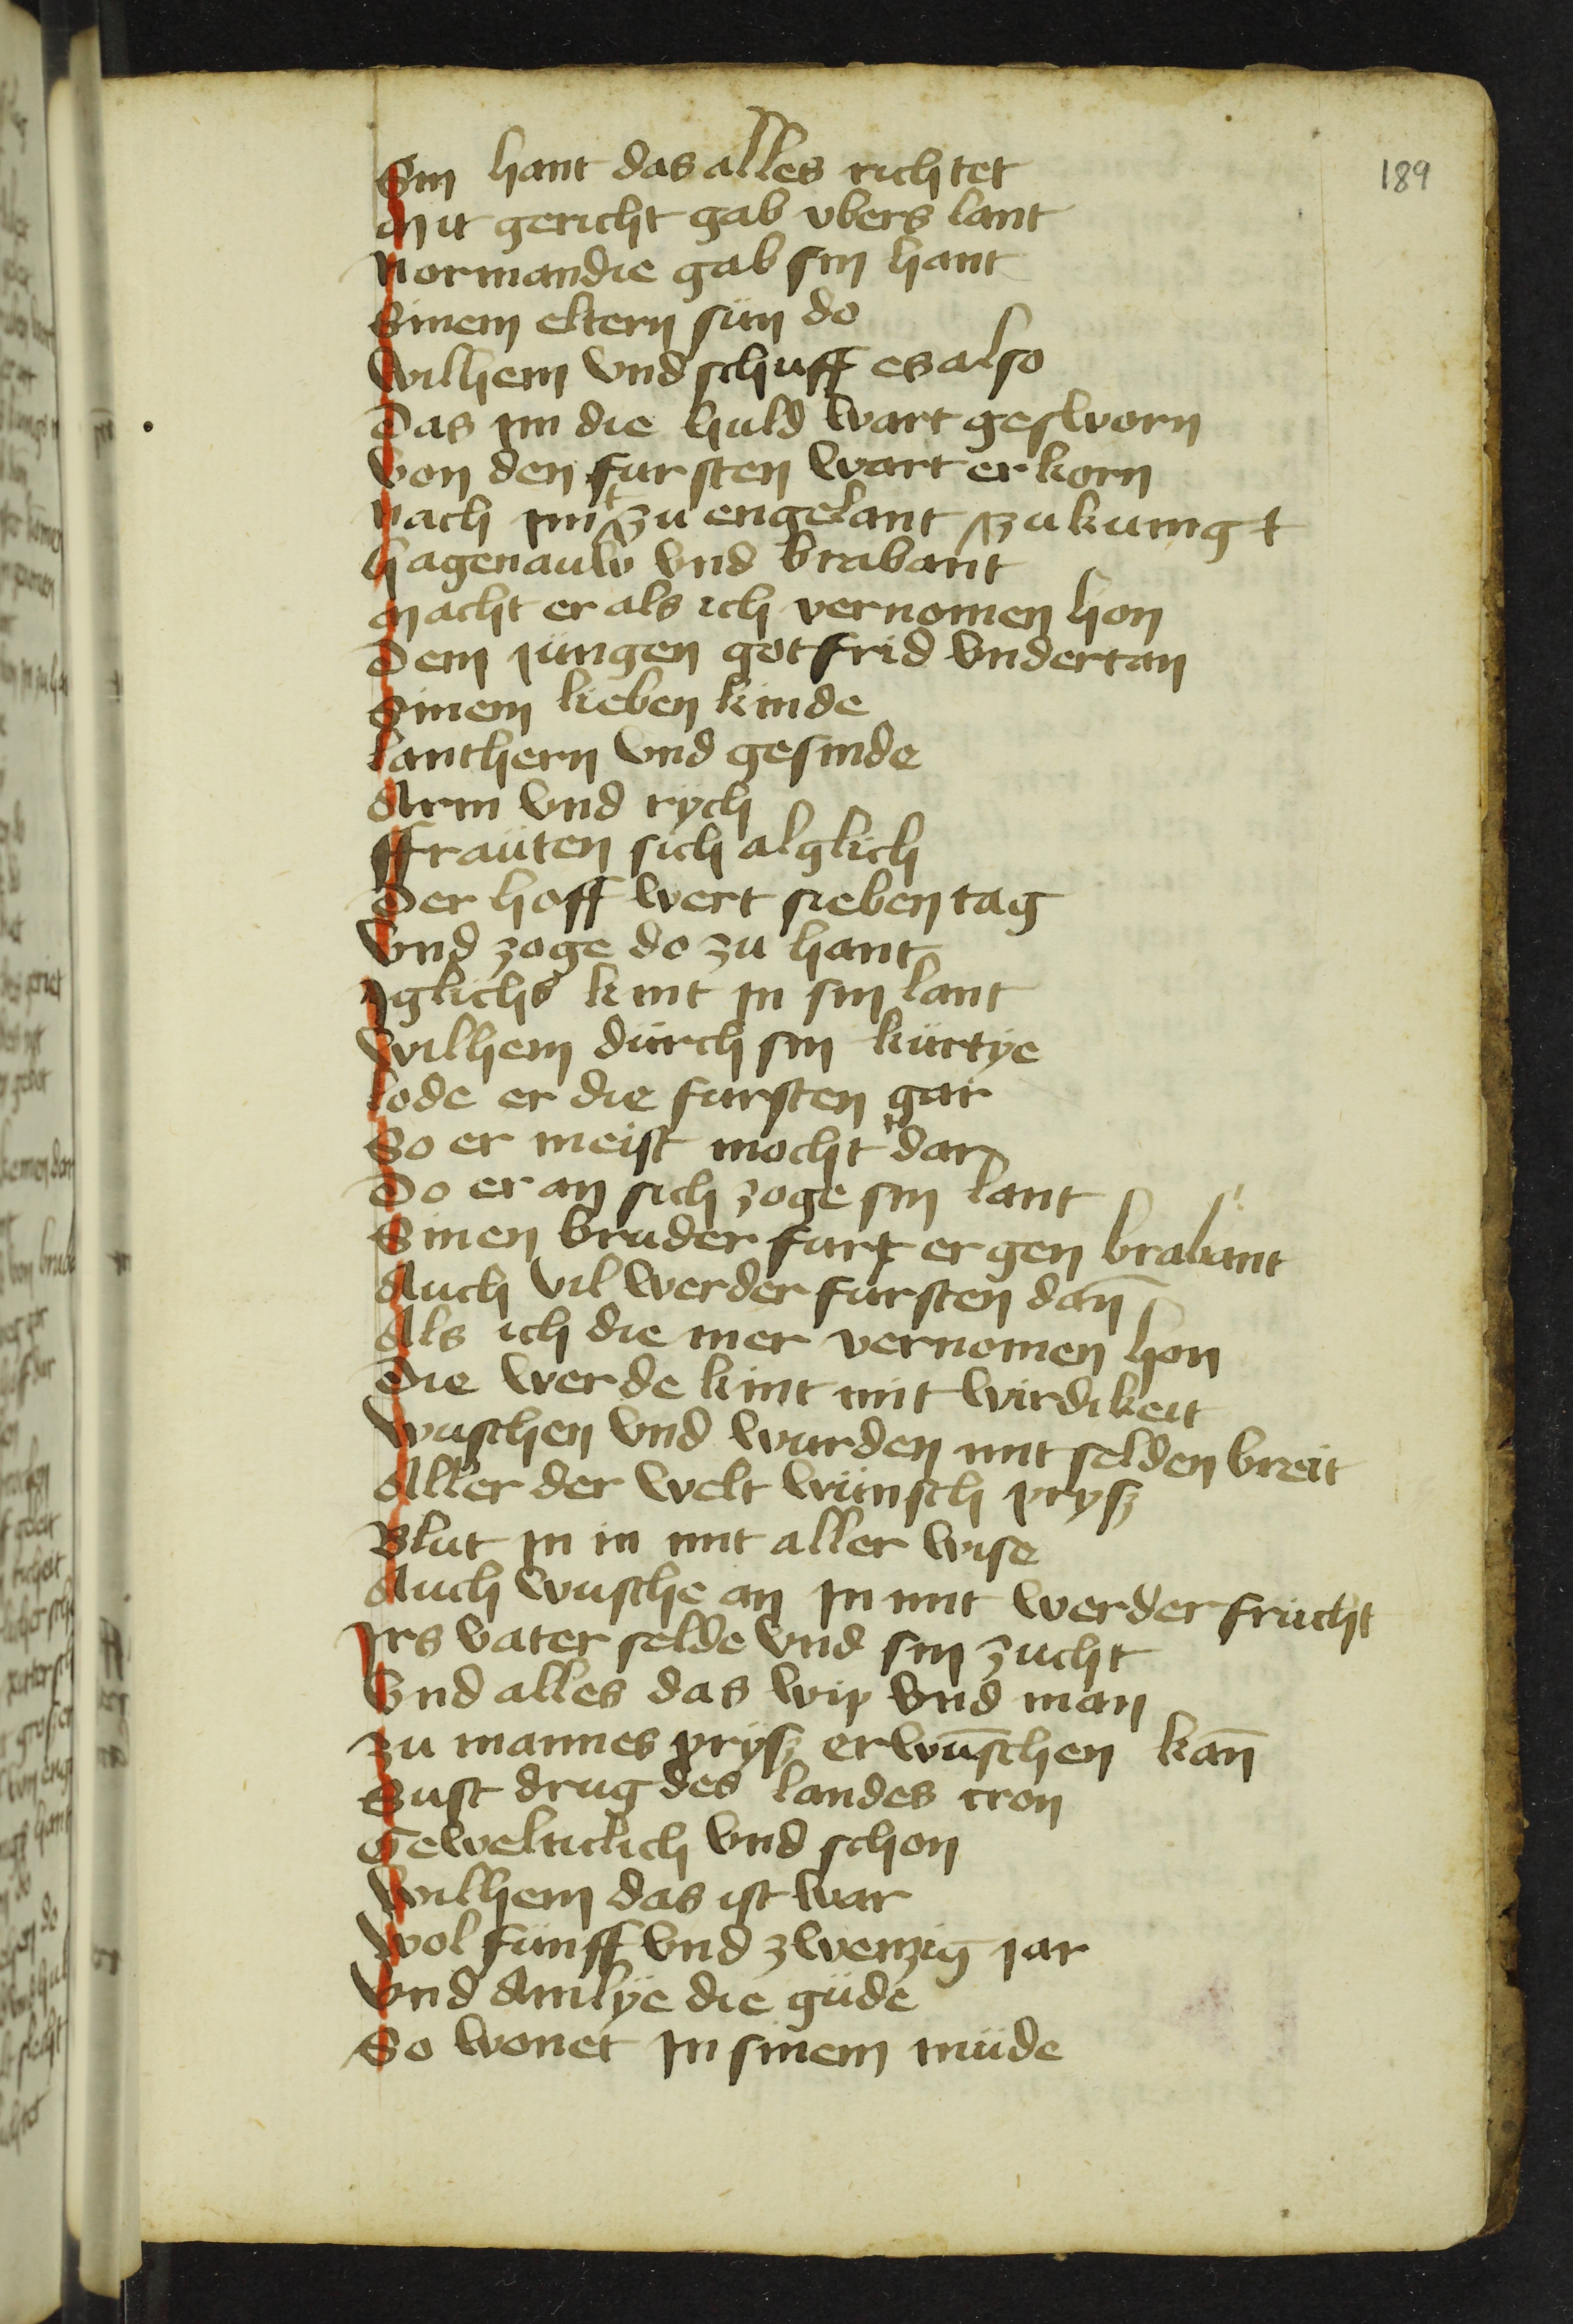 189
Sin hant das alles richtet
Mit gericht gab vbers lant
Normandie gab sin hant
Sinem eltern sün do
Wilhem vnd schuff es also
Das im die huld wart gesworn
Von den fursten wart erkorn
Nach im zu engelant zu kunig
Hagenauw vnd brabant
Macht er als ich vernomen hon
Dem jungen gotfrid vndertan
Sinem lieben kinde
Lanthern vnd gesinde
Arm vnd rych
ffraüten sich alglich
Der hoff wert sieben tag
Vnd zoge do zu hant
Iglichs kint in sin lant
Wilhem dürch sin kürtye
Lode er die fursten gar
So er meist mocht dar
Do er an sich zoge sin lant
Sinen bruder furt er gen brabant
Auch vil werder fursten dan̄
Als ich die mer vernomen hon
Die werde kint mit wirdikeit
Wuschen vnd wurden mit selden breit
Aller der welt wünsch prysz
Blut in in mit aller wise
Auch wusche an in mit werder frücht
Irs vater selde vnd sin zucht
Vnd alles das wip vnd man
Zu mannes prysz erwūschen kan̄
Sust drug des landes cron
Gewelticlich vnd schon
Wilhem das ist war
Wol fünff vnd zwenzig jar
Vnd Amlye die güde
So wonet in sinem müde